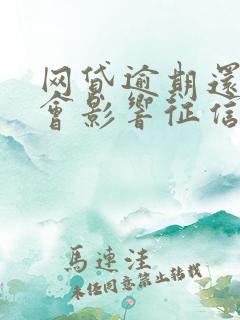 网贷逾期還
會影響征信
馬連洼
未经同意禁止转载